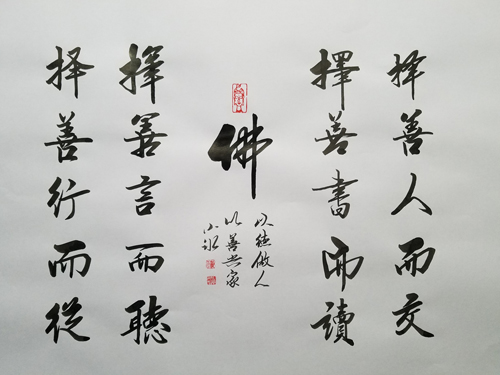 择善人而交
擇善書而讀
佛
以德做人
以善共家
小冰
擇善言而聽
择善行而從